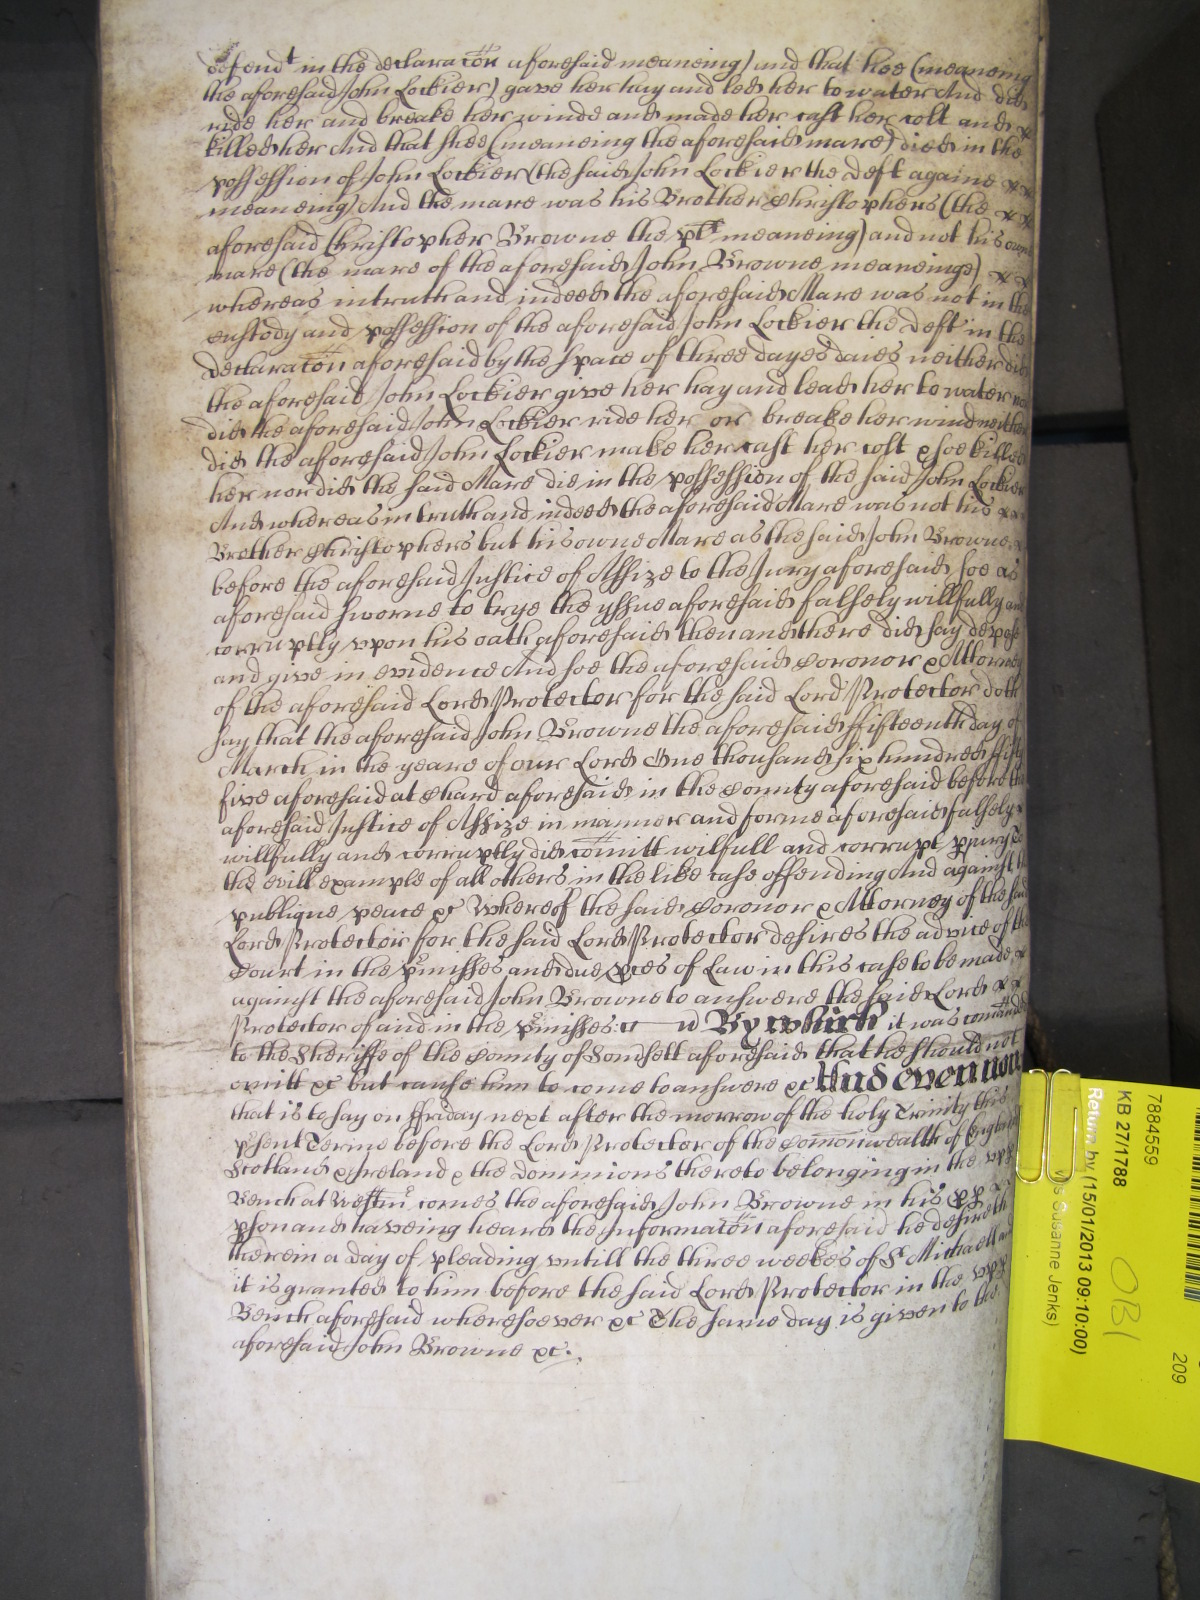 defendt in the declaracōn aforesaid meaneing) and that hee (meaneing
the aforesaid John Lockier) gave her hay and led her to water And did
ride her and breake her winde and made her cast her colt and x
killed her And that shee (meaneing the aforesaid mare) died in the
possession of John Lockier (the said John Lockier the deft againe x x
meaneing) And the mare was his Brother Christophers (the x x
aforesaid Christopher Browne the plt meaneing) and not his owne
mare (the mare of the aforesaid John Browne meaneinge) x x
whereas in truth and indeed the aforesaid Mare was not in the
custody and possession of the aforesaid John Lockier the deft in the
declaracōn aforesaid by the space of three dayes daies neither did
the aforesaid John Lockier give her hay and lead her to water nor
did the aforesaid John Lockier ride her or breake her wind neither
did the aforesaid John Lockier make her cast her colt & soe killed
her nor did the said Mare die in the possession of the said John Lockier
And whereas in truth and indeed the aforesaid Mare was not his x x
Brother Christophers but his owne Mare as the said John Browne x
before the aforesaid Justice of Assize to the Jury aforesaid soe as
aforesaid sworne to trye the yssue aforesaid falsely willfully and
corruptly vpon his oath aforesaid then and there did say depose
and give in evidence And soe the aforesaid Coronor & Attorney
of the aforesaid Lord Protector for the said Lord Protector doth
say that the aforesaid John Browne the aforesaid ffifteenth day of
March in the yeare of our Lord One thousand six hundred ffifty
five aforesaid at Chard aforesaid in the County aforesaid before the
aforesaid Justice of Assize in manner and forme aforesaid falsely
willfully and corruptly did com̄itt wilfull and corrupt piury To
the evill example of all others in the like case offending And against the
publique peace &c Whereof the said Coronor & Attorney of the said
Lord Protector for the said Lord Protector desires the advice of the
Court in the p̄misses and due pces of Law in this case to be made x
against the aforesaid John Browne to answere the said Lord x x
Protector of and in the p̄misses &c By which it was com̄anded
to the Sheriffe of the County of Som̄sett aforesaid that he should not
omitt &c but cause him to come to answere &c And even now
that is to say on ffriday next after the morrow of the holy Trinity this
p̄sent Terme before the Lord Protector of the Com̄onwealth of England
Scotland & Ireland & the dominions thereto belonging in the vpp
Bench at Westm̄ comes the aforesaid John Browne in his pp
pson and haveing heard the Informacōn aforesaid he desireth
therein a day of pleading vntill the three weekes of St Michaell and
it is granted to him before the said Lord Protector in the vpp
Bench aforesaid wheresoever &c The same day is given to the
aforesaid John Browne &c.
7884559
KB 27/1788
Return by (15/01/2013 09:10:00)
Susanne Jenks)
OB1
209